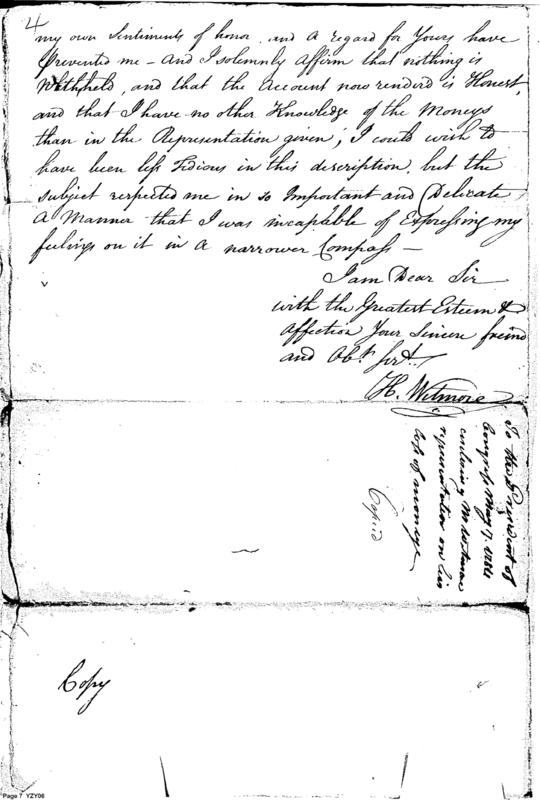 4
my own Sentiments of honor and A regard for Yours have
prevented me – and I solemnly affirm that nothing is
Withheld, and that the Account now renderd is Honest,
and that I have no other Knowledge of the Moneys
than in the Representation given; I could wish to
have been less Tidious in this description, but the
subject respected me in so Important and Delicate
A Manner that I was incapable of Expressing my
feelings on it in A narrower Compass –
I am Dear Sir
with the Greatest Esteem &
Affection Your Sincere freind
and Obt. Servt.
H. Witmore
To the President of
Congress May 7. 1781
enclosing Mr
representation on his
loss of money
Copied
Copy
Page 7 YZY06